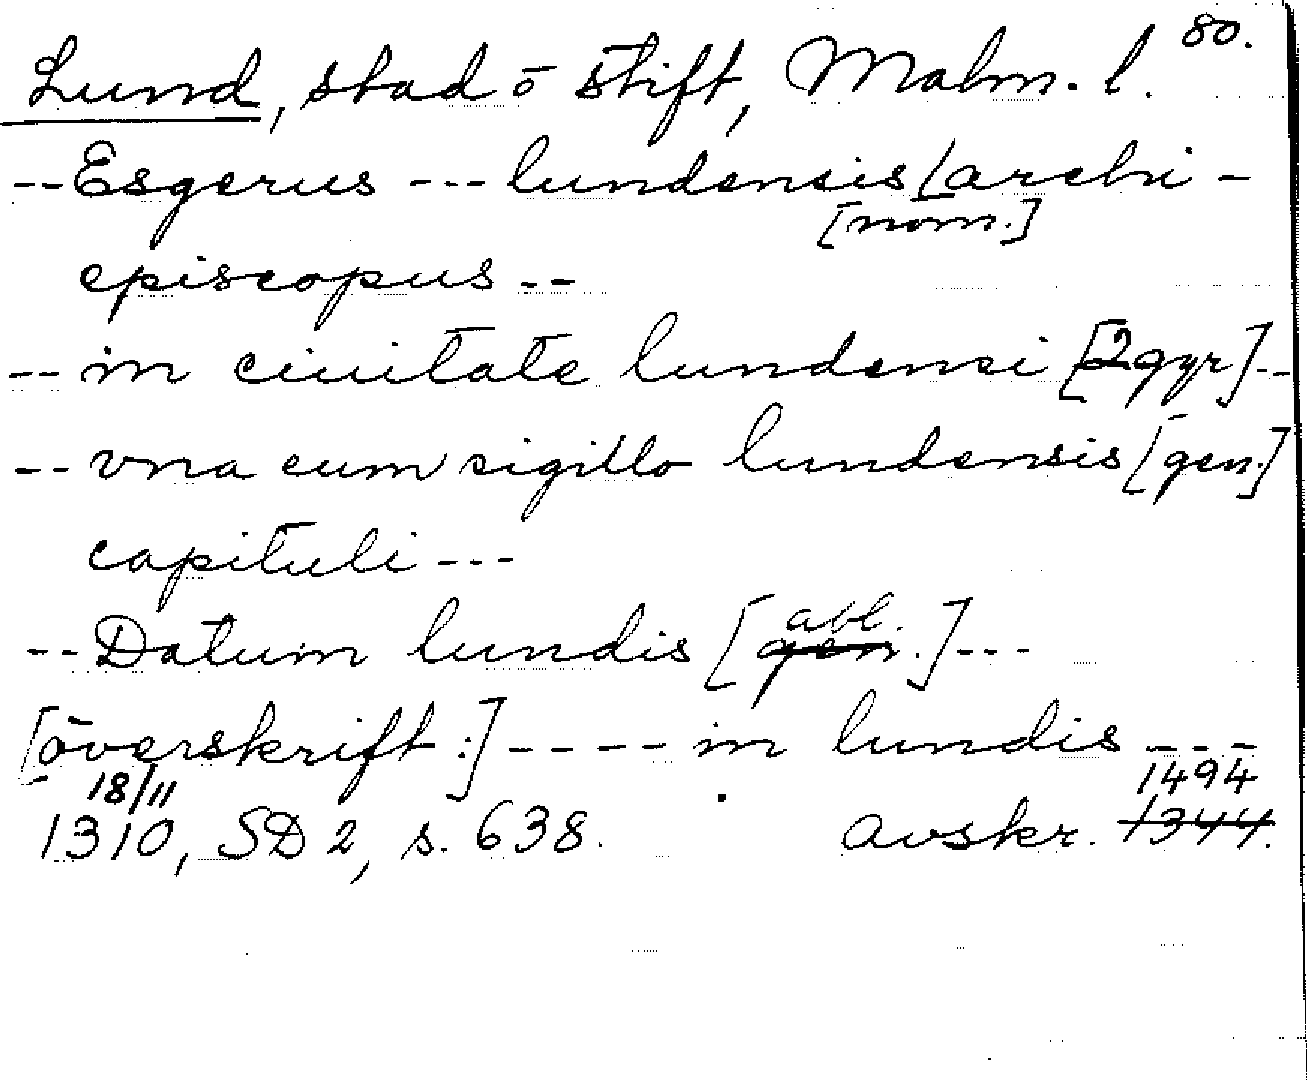 80.
Lund, stad o stift, Malm. l.
-- Esgerus --- lundensis [archi-
[nom.]
episcopus --
-- in ciuitate lundensi [2 ggr] --
-- vna cum sigillo lundensis [gen.]
capituli ---
-- Datum lundis [gen. abl.] ---
[överskrift:] ---- in lundis ---
18/11 1494
1310, SD 2, s. 638. avskr. 1344.